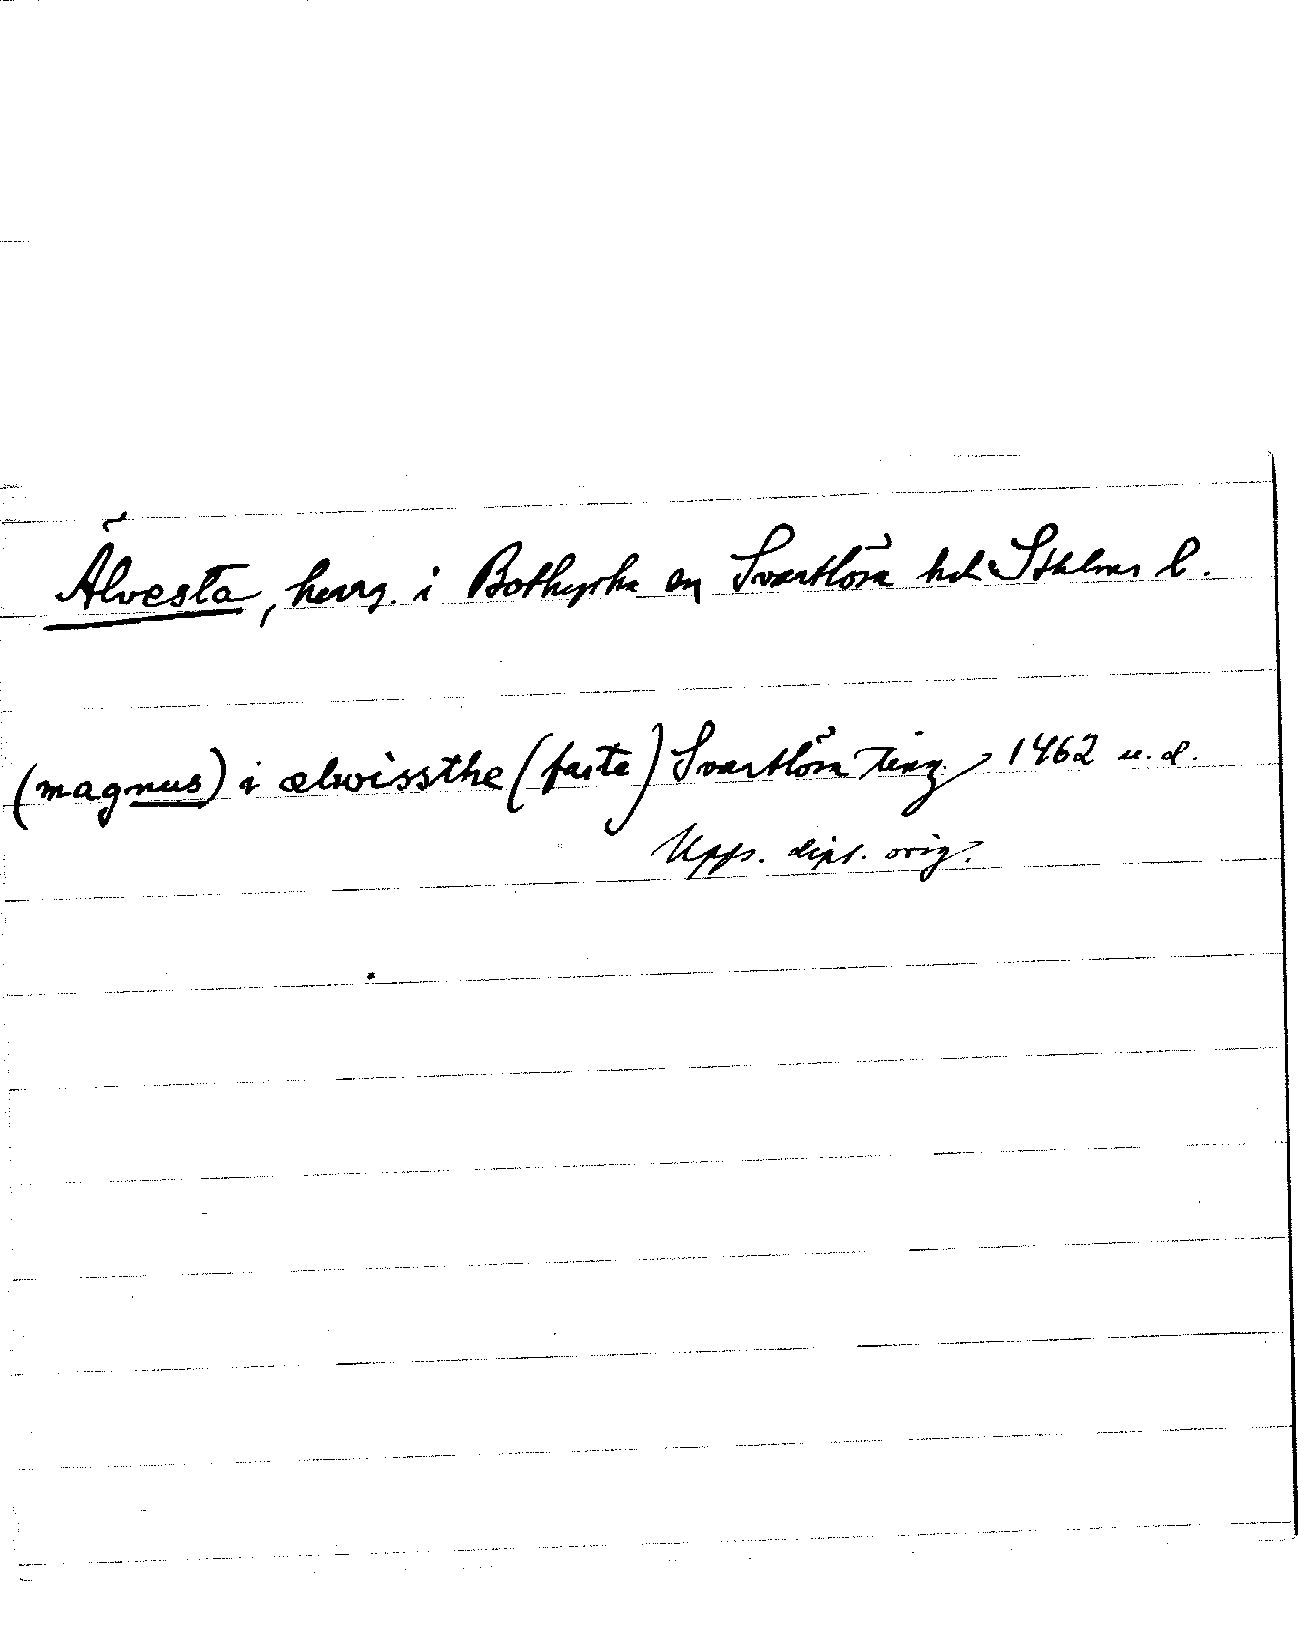 Älvesta, herrg. i Bothyrka sn Svartlösa hd Sthlms l.
(magnus) i ælwissthe (faste) Svartlösa Ting 1462 u.d.
Upps. dipl. orig.